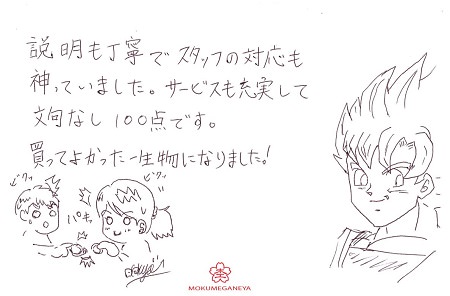 説明も丁寧でスタッフの対応も
神っていました。サービスも充実して
文句なし100点です。
買ってよかった一生物になりました!
ビクッ
ビクッ
パキッ
MOKUMEGANEYA